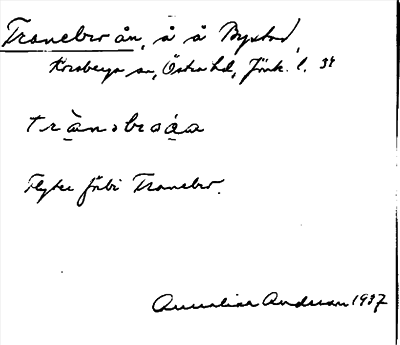 Tranebro ån, å å Bystad,
Korsberga sn, Östra hd, Jönk. l. 34
trànəbroáa
Flyter förbi Tranebro.
Annalisa Andersson 1937